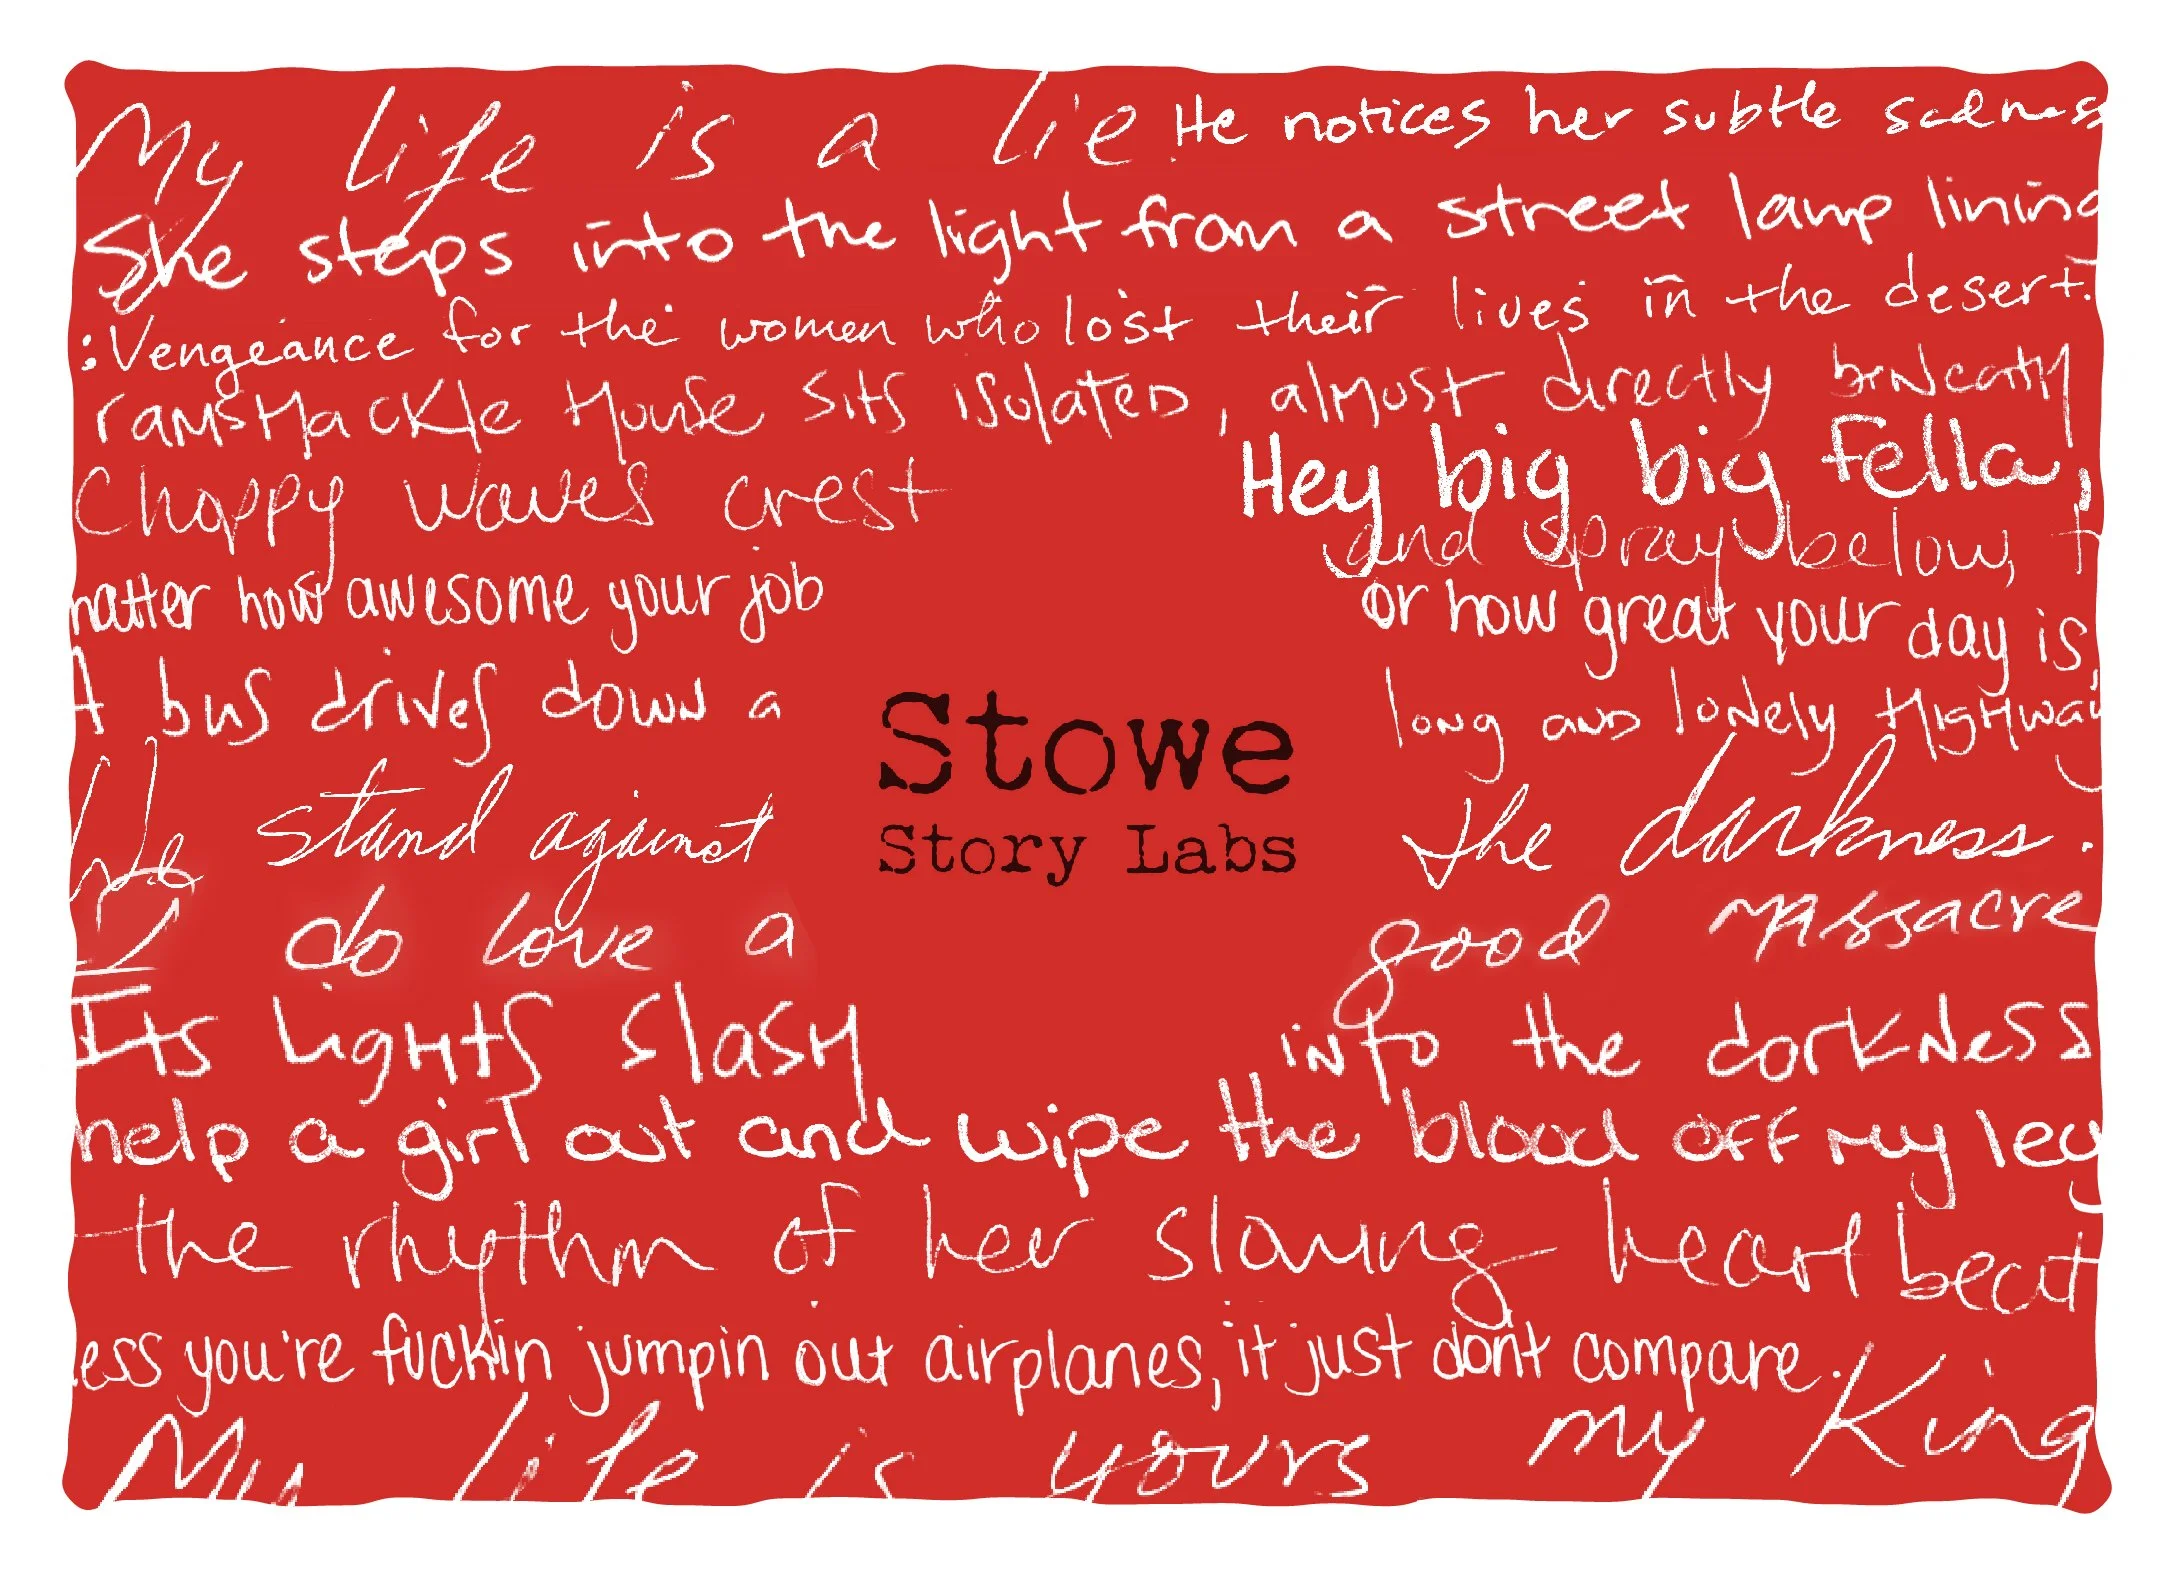 My life is a lie He notices her subtle sadness
She steps into the light from a street lamp lining
:Vengeance for the women who lost their lives in the desert.
ramshackle House sits isolated, almost directly beneath
Choppy waves crest Hey big big fella,
and spray below, t
matter how awesome your job or how great your day is,
A bus drives down a long and lonely Highway
Stowe
We stand against the darkness.
Story Labs
I do love a good massacre
Its Lights slash into the darkness
help a girl out and wipe the blood off my leg
the rhythm of her slowing heart beat
ess you're fuckin jumpin out airplanes, it just dont compare.
My life is yours my King